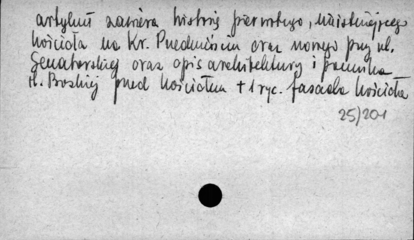 artykuł zawiera historię pierwotnego, nieistniejącego
kościoła na Kr. Przedmieściu oraz nowego przy ul.
Senatorskiej oraz opis architektury i pomnika
M. Boskiej przed kościołem + 1 ryc. fasada kościoła
25/201